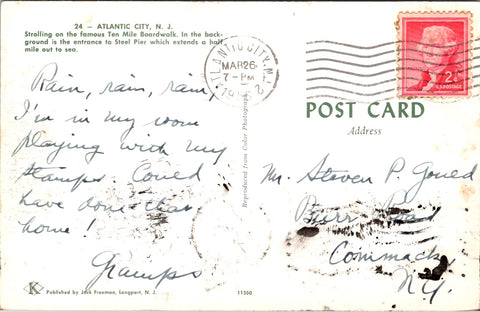 24 — ATLANTIC CITY, N. J.
Strolling on the famous Ten Mile Boardwalk. In the back-
ground is the entrance to Steel Pier which extends a half
mile out to sea.
Rain, rain, rain,
I'm in my room
playing with my
stamps. Could
have done that
home!
Gramps
K
Published by Jack Freeman, Longport, N. J.
11560
Reproduced from Color Photograph
ATLANTIC CITY, N.J.
MAR 26
7 - PM
2
2¢
U.S. POSTAGE
POST CARD
Address
Mr. Steven P. Gould
Burr Road
Commack
N.Y.